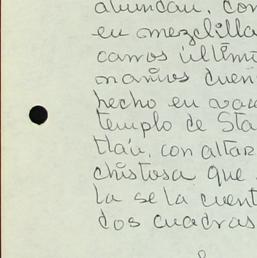 abundan, con
en mezclilla
carros último
hecho en vac
templo de Sta
tlán, con altar
chistosa que
la se la cuent
dos cuadras